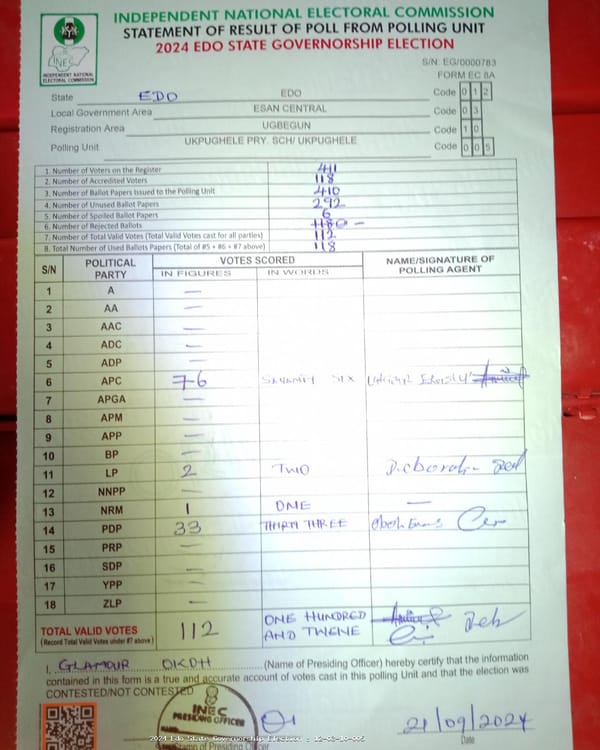 INDEPENDENT NATIONAL ELECTORAL COMMISSION
STATEMENT OF RESULT OF POLL FROM POLLING UNIT
2024 EDO STATE GOVERNORSHIP ELECTION
INEC
INDEPENDENT NATIONAL ELECTORAL COMMISSION
S/N: EG/0000783
FORM EC 8A
State EDO EDO Code 0 1 2
Local Government Area ESAN CENTRAL Code 0 3
Registration Area UGBEGUN Code 1 0
Polling Unit UKPUGHELE PRY. SCH/ UKPUGHELE Code 0 0 5
1. Number of Voters on the Register 411
2. Number of Accredited Voters 118
3. Number of Ballot Papers Issued to the Polling Unit 410
4. Number of Unused Ballot Papers 292
5. Number of Spoiled Ballot Papers 6
6. Number of Rejected Ballots –
7. Number of Total Valid Votes (Total Valid Votes cast for all parties) 112
8. Total Number of Used Ballots Papers (Total of #5 + #6 + #7 above) 118
S/N POLITICAL PARTY VOTES SCORED NAME/SIGNATURE OF POLLING AGENT
IN FIGURES IN WORDS
1 A —
2 AA —
3 AAC —
4 ADC —
5 ADP —
6 APC 76 SEVENTY SIX
7 APGA —
8 APM —
9 APP —
10 BP —
11 LP 2 TWO Deborah
12 NNPP —
13 NRM 1 ONE —
14 PDP 33 THIRTY THREE
15 PRP —
16 SDP —
17 YPP —
18 ZLP —
TOTAL VALID VOTES 112 ONE HUNDRED
(Record Total Valid Votes under #7 above) AND TWENE
I, GLAMOUR OKOH (Name of Presiding Officer) hereby certify that the information
contained in this form is a true and accurate account of votes cast in this polling Unit and that the election was
CONTESTED/NOT CONTESTED
INEC
PRESIDING OFFICER
21/09/2024
Stamp of Presiding Officer Date
2024 Edo State Governorship Election : 12-03-10-005